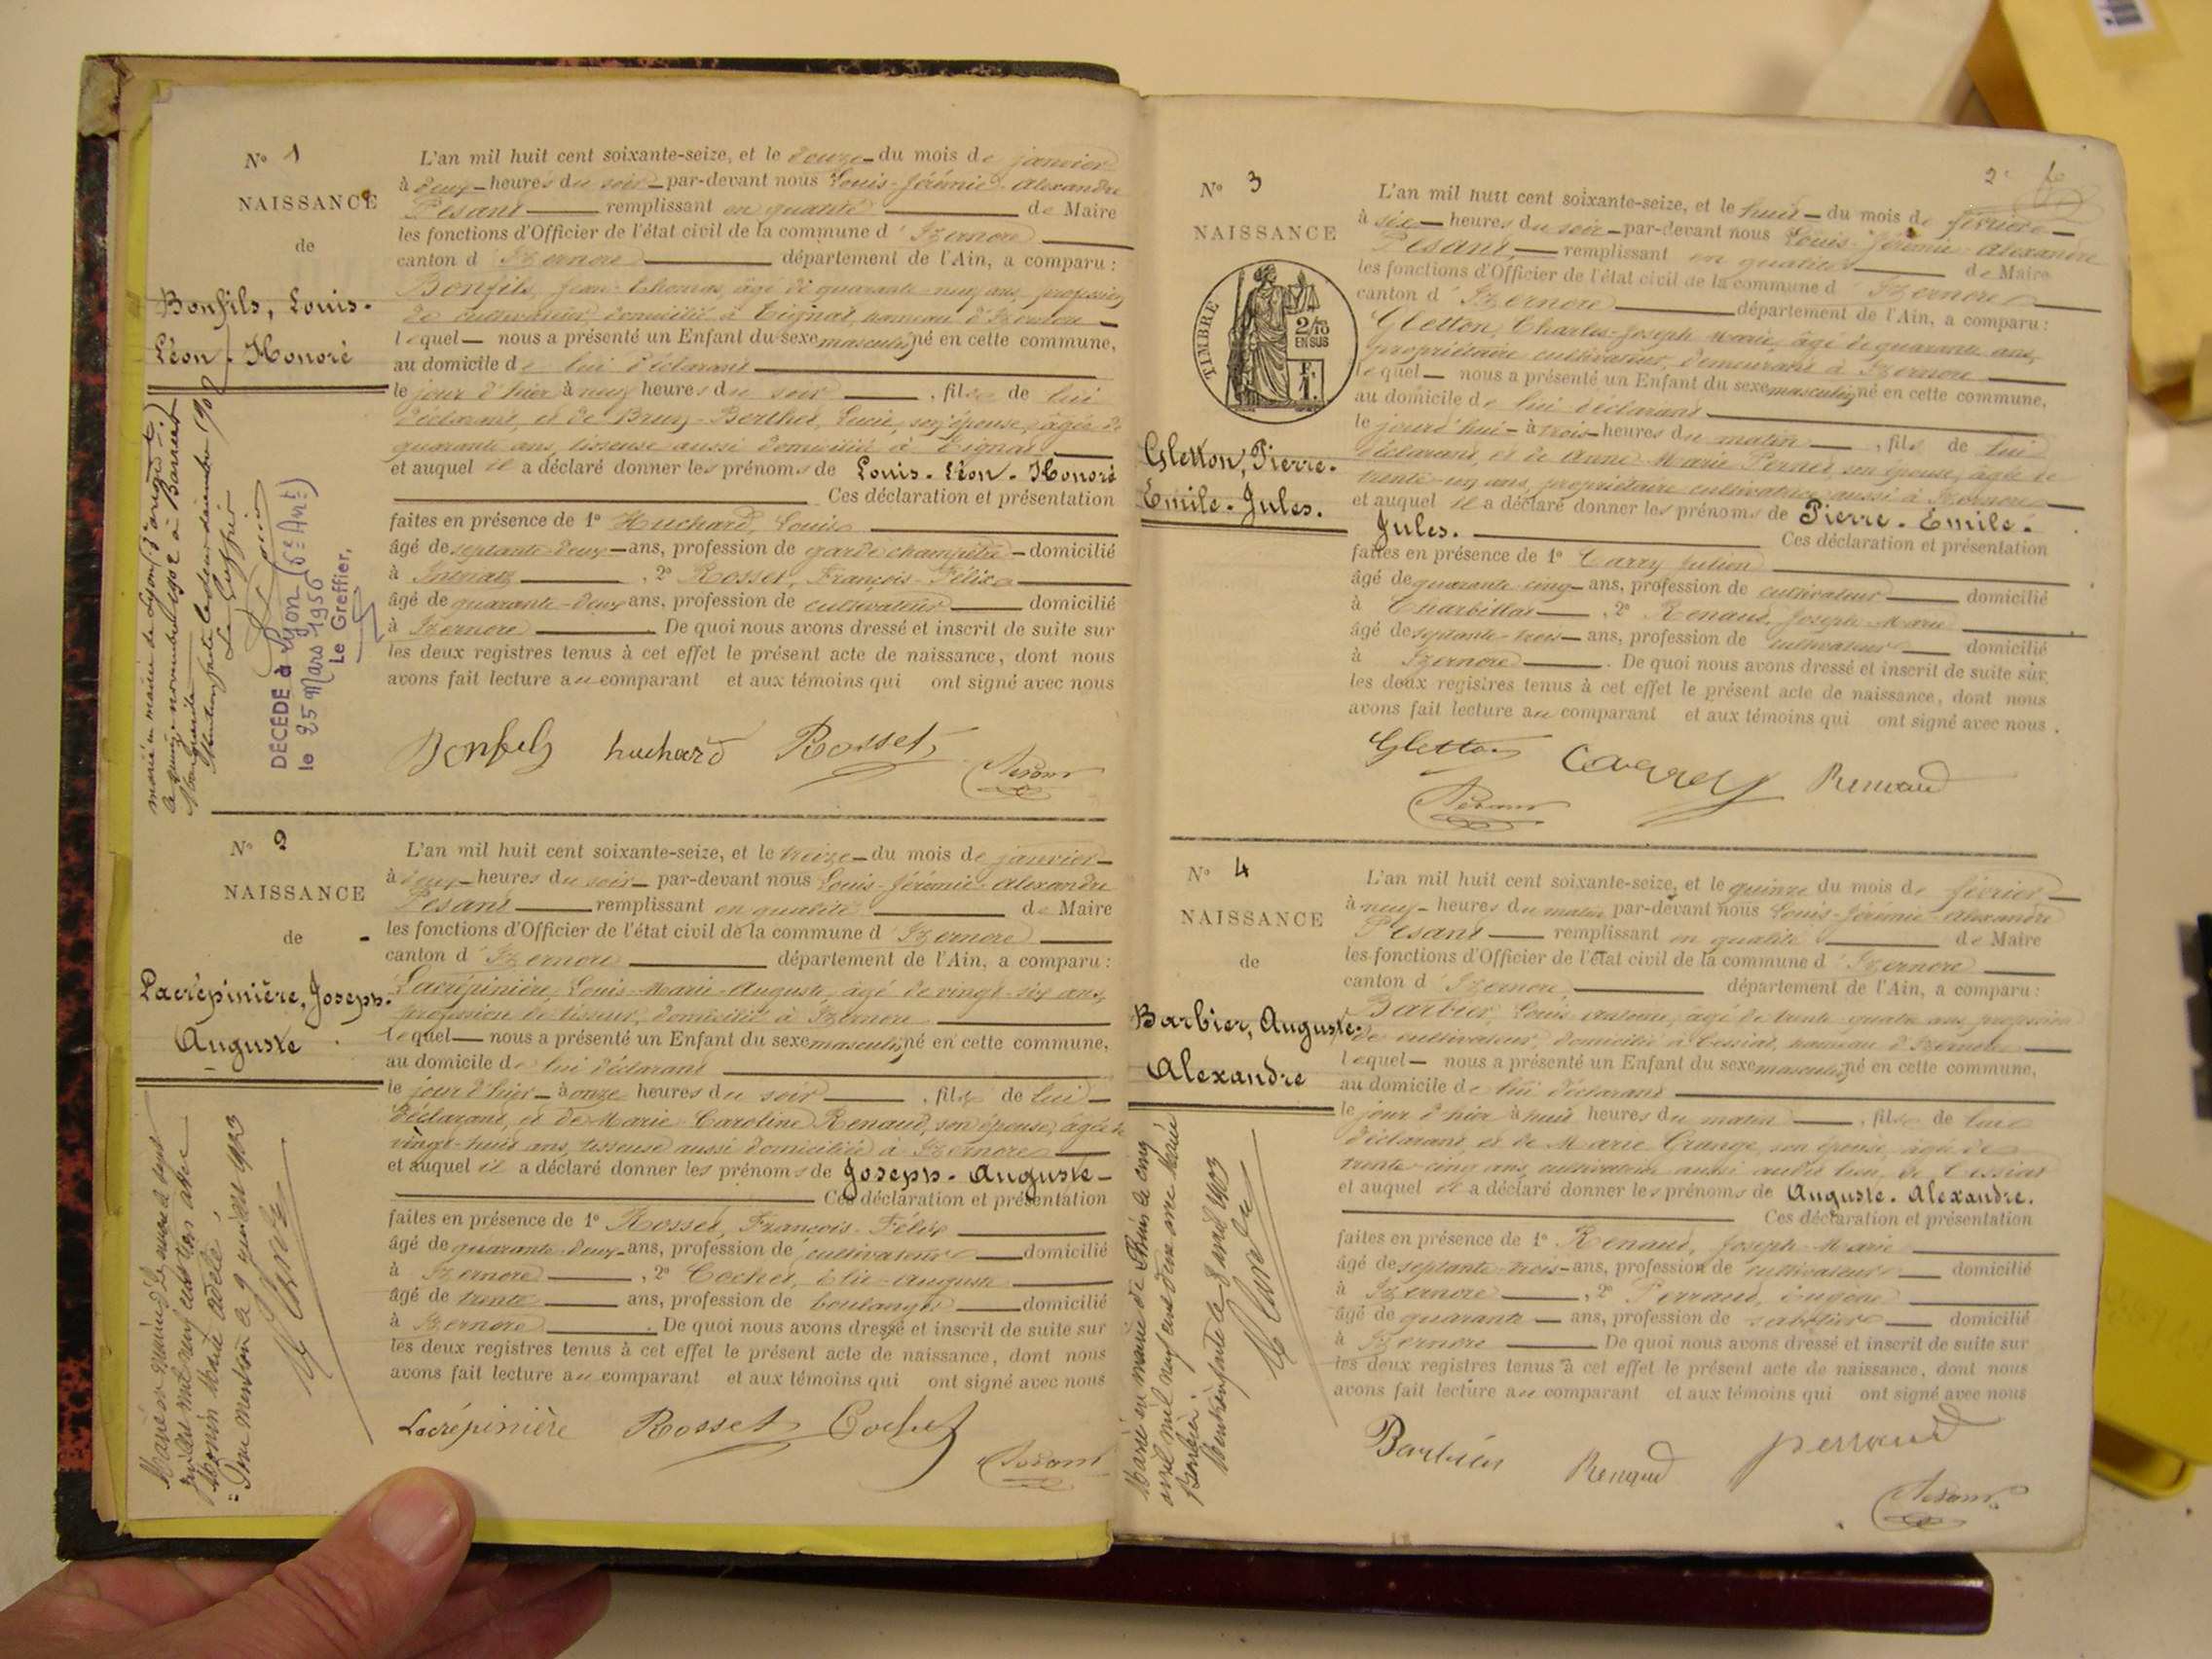 N° 1
NAISSANCE
de
Bonfils, Louis-
Léon-Honoré
L'an mil huit cent soixante-seize, et le douze du mois de janvier
à deux heures du soir par-devant nous Louis-Jérémie-Alexandre
Pesant remplissant en qualité de Maire
les fonctions d'Officier de l'état civil de la commune d'Izernore
canton d'Izernore département de l'Ain, a comparu :
Bonfils, Jean-Thomas, âgé de quarante-neuf ans, profession
de cultivateur, domicilié à Tignat, hameau d'Izernore
lequel nous a présenté un Enfant du sexe masculin, né en cette commune,
au domicile de lui déclarant
le jour d'hier à neuf heures du soir, fils de lui
déclarant, et de Berthet, son épouse, âgée de
quarante ans, tisseuse aussi domiciliée à Tignat
et auquel il a déclaré donner les prénoms de Louis-Léon-Honoré
Ces déclaration et présentation
faites en présence de 1° Huchard, Louis
âgé de septante-deux ans, profession de garde champêtre domicilié
à Intriatz, 2° Rosset, François-Félix
âgé de quarante-deux ans, profession de cultivateur domicilié
à Izernore De quoi nous avons dressé et inscrit de suite sur
les deux registres tenus à cet effet le présent acte de naissance, dont nous
avons fait lecture au comparant et aux témoins qui ont signé avec nous
Bonfils huchard Rosset
Pesant
marié en mairie de Lyon (3e arrondt)
le quinze novembre 1902 à Barret
Marguerite
Mention faite le deux décembre 190
Le Greffier
DÉCÉDÉ à Lyon (6e Art)
le 25 Mars 1956
Le Greffier,
N° 2
NAISSANCE
de
Lacrépinière, Joseph-
Auguste
L'an mil huit cent soixante-seize, et le treize du mois de janvier
à deux heures du soir par-devant nous Louis-Jérémie-Alexandre
Pesant remplissant en qualité de Maire
les fonctions d'Officier de l'état civil de la commune d'Izernore
canton d'Izernore département de l'Ain, a comparu :
Lacrépinière, Louis-Marie-Auguste, âgé de vingt-six ans,
profession de tisseur, domicilié à Izernore
lequel nous a présenté un Enfant du sexe masculin, né en cette commune,
au domicile de lui déclarant
le jour d'hier à onze heures du soir, fils de lui
déclarant, et de Marie Caroline Renaud, son épouse, âgée de
vingt-huit ans, tisseuse aussi domiciliée à Izernore
et auquel il a déclaré donner les prénoms de Joseph-Auguste
Ces déclaration et présentation
faites en présence de 1° Rosset, François-Félix
âgé de quarante-deux ans, profession de cultivateur domicilié
à Izernore, 2° Cochet, Elie-Auguste
âgé de trente ans, profession de boulanger domicilié
à Izernore. De quoi nous avons dressé et inscrit de suite sur
les deux registres tenus à cet effet le présent acte de naissance, dont nous
avons fait lecture au comparant et aux témoins qui ont signé avec nous
Lacrépinière Rosset Cochet
Pesant
Marié
mil neuf cent trois avec
Monin Marie Adèle
Pour mention le 9
2e
N° 3
NAISSANCE
TIMBRE
2/10
EN SUS
F.
1.
Gletton, Pierre-
Émile-Jules.
L'an mil huit cent soixante-seize, et le huit du mois de février
à six heures du soir par-devant nous Louis-Jérémie-Alexandre
Pesant, remplissant en qualité de Maire
les fonctions d'Officier de l'état civil de la commune d'Izernore
canton d'Izernore département de l'Ain, a comparu :
Gletton, Charles-Joseph Marie, âgé de quarante ans,
propriétaire cultivateur, demeurant à Izernore
lequel nous a présenté un Enfant du sexe masculin, né en cette commune,
au domicile de lui déclarant
le jourd'hui à trois heures du matin, fils de lui
déclarant, et de Anne Marie Pernet, son épouse, âgée de
trente-un ans, propriétaire cultivatrice aussi à Izernore
et auquel il a déclaré donner les prénoms de Pierre-Émile-
Jules. Ces déclaration et présentation
faites en présence de 1° Carry Julien
âgé de quarante-cinq ans, profession de cultivateur domicilié
à Charbillat, 2° Renaud, Joseph-Marie
âgé de septante-trois ans, profession de cultivateur domicilié
à Izernore. De quoi nous avons dressé et inscrit de suite sur
les deux registres tenus à cet effet le présent acte de naissance, dont nous
avons fait lecture au comparant et aux témoins qui ont signé avec nous.
Gletton Carry Renaud
Pesant
N° 4
NAISSANCE
de
Barbier, Auguste-
Alexandre
L'an mil huit cent soixante-seize, et le quinze du mois de février
à neuf heures du matin par-devant nous Louis-Jérémie-Alexandre
Pesant remplissant en qualité de Maire
les fonctions d'Officier de l'état civil de la commune d'Izernore
canton d'Izernore, département de l'Ain, a comparu :
Barbier, Louis Antoine, âgé de trente-quatre ans, profession
de cultivateur, domicilié à Cessiat, hameau d'Izernore
lequel nous a présenté un Enfant du sexe masculin, né en cette commune,
au domicile de lui déclarant
le jour d'hier à huit heures du matin, fils de lui
déclarant, et de Marie Grange, son épouse, âgée de
trente-cinq ans, cultivatrice aussi audit lieu de Cessiat
et auquel il a déclaré donner les prénoms de Auguste-Alexandre.
Ces déclaration et présentation
faites en présence de 1° Renaud, Joseph-Marie
âgé de septante-trois ans, profession de cultivateur domicilié
à Izernore, 2° Perraud, Eugène
âgé de quarante ans, profession de sabotier domicilié
à Izernore De quoi nous avons dressé et inscrit de suite sur
les deux registres tenus à cet effet le présent acte de naissance, dont nous
avons fait lecture au comparant et aux témoins qui ont signé avec nous
Barbier Renaud perraud
Pesant
Marié en mairie de le cinq
avril mil neuf cent deux avec Marie
Mention faite le 8 avril 1903